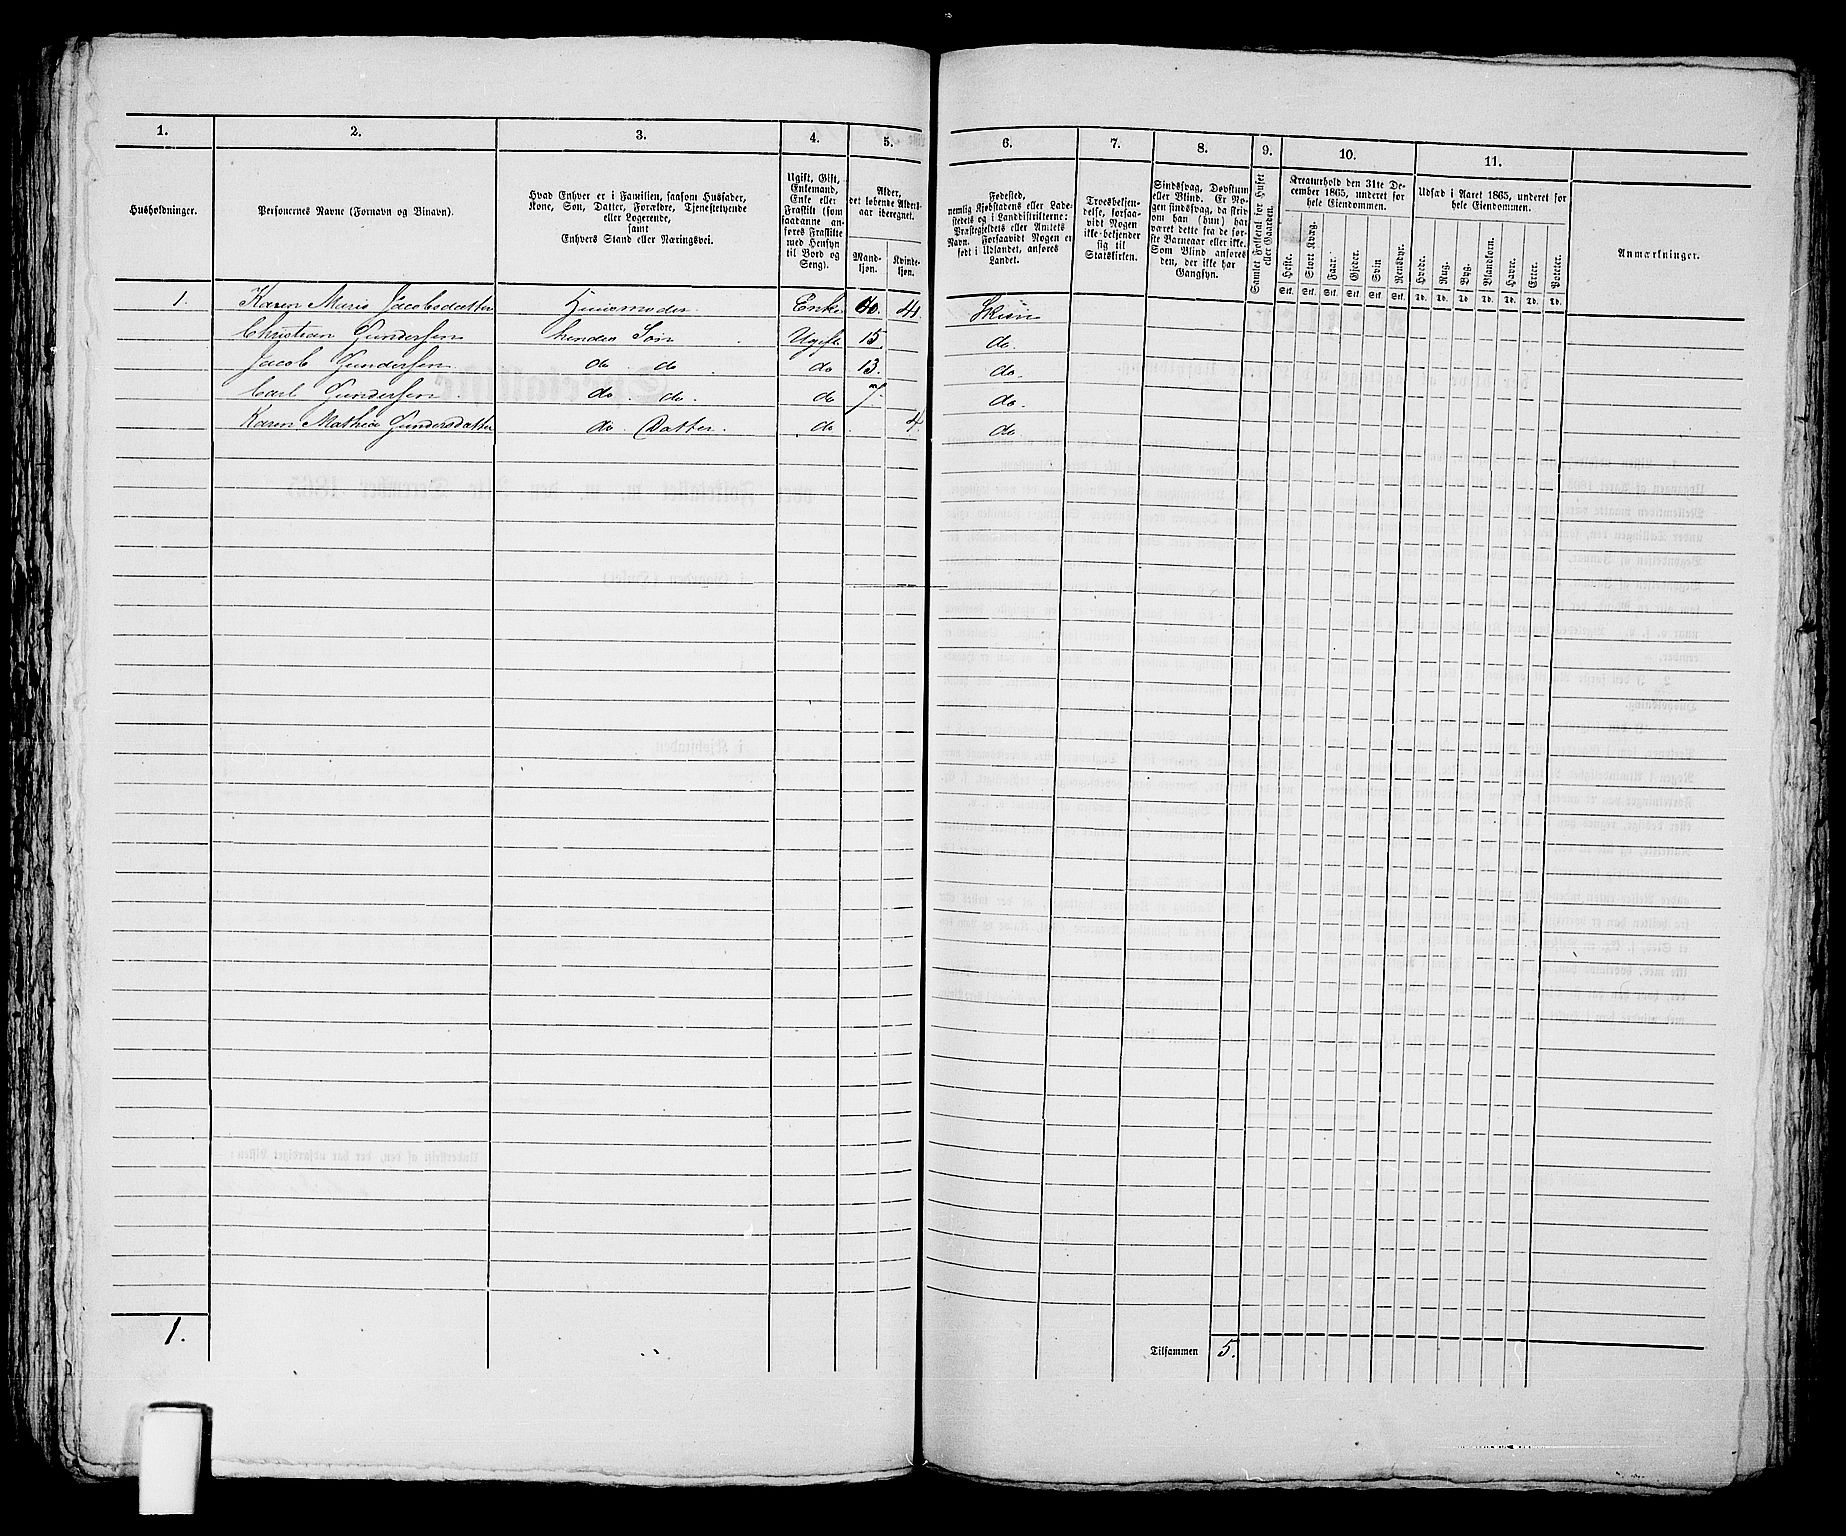 1. 2. 3. 4. 5. 6. 7. 8. 9. 10. 11.
Husholdninger.
Personernes Navne (Fornavn og Binavn).
Hvad Enhver er i Familien, saasom Husfader,
Kone, Søn, Datter, Forældre, Tjenestetyende
eller Logerende,
samt
Enhvers Stand eller Næringsvei.
Ugift, Gift,
Enkemand,
Enke eller
Fraskilt (som
saadanne an-
føres Fraskilte
med Hensyn
til Bord og
Seng).
Alder,
det løbende Alders-
aar iberegnet.
Mand-
kjøn.
Kvinde-
kjøn.
Fødested,
nemlig Kjøbstadens eller Lade-
stedets og i Landdistrikterne:
Præstegjeldets eller Amtets
Navn. Forsaavidt Nogen er
født i Udlandet, anføres
Landet.
Troesbekjen-
delse, forsaa-
vidt Nogen
ikke bekjender
sig til
Statskirken.
Sindssvag, Døvstum
eller Blind. Er No-
gen sindssvag, da skrives
om han (hun) har
været dette fra de før-
ste Barneaar eller ikke.
Som Blind anføres
den, der ikke har
Gangsyn.
Samlet Folketal for Huset
eller Gaarden.
Kreaturhold den 31te De-
cember 1865, underet for
hele Eiendommen.
Heste. Stort Kvæg. Faar. Gjeder. Svin Rensdyr.
Stk. Stk. Stk. Stk. Stk. Stk.
Udsæd i Aaret 1865, underet for
hele Eiendommen.
Hvede. Rug. Byg. Blandkorn. Havre. Erter. Poteter.
Td. Td. Td Td. Td. Td. Td.
Anmærkninger.
1. Karen Marie Jacobsdatter Huusmoder Enke 4. Skien
Christian Gundersen hendes Søn Ugift 15. do.
Jacob Gundersen do. do. do 13. do.
Carl Gundersen do. do. do 7. do.
Karen Mathea Gundersdatter do. Datter. do 4. do.
1.
Tilsammen 5.